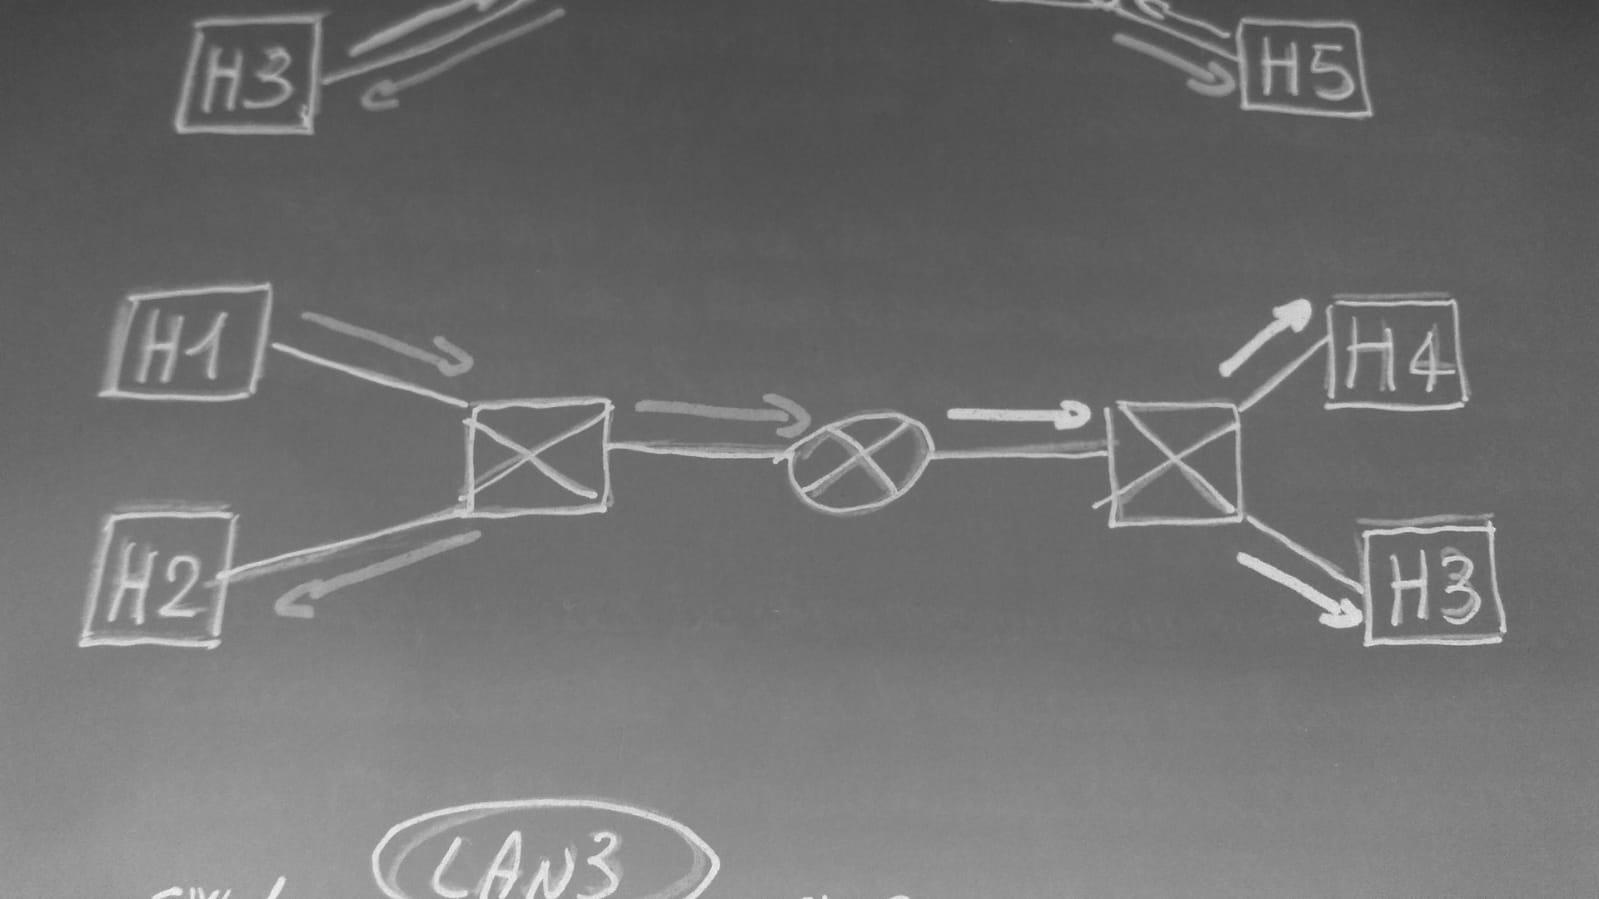 H3 H5
H1 H4
H2 H3
LAN3